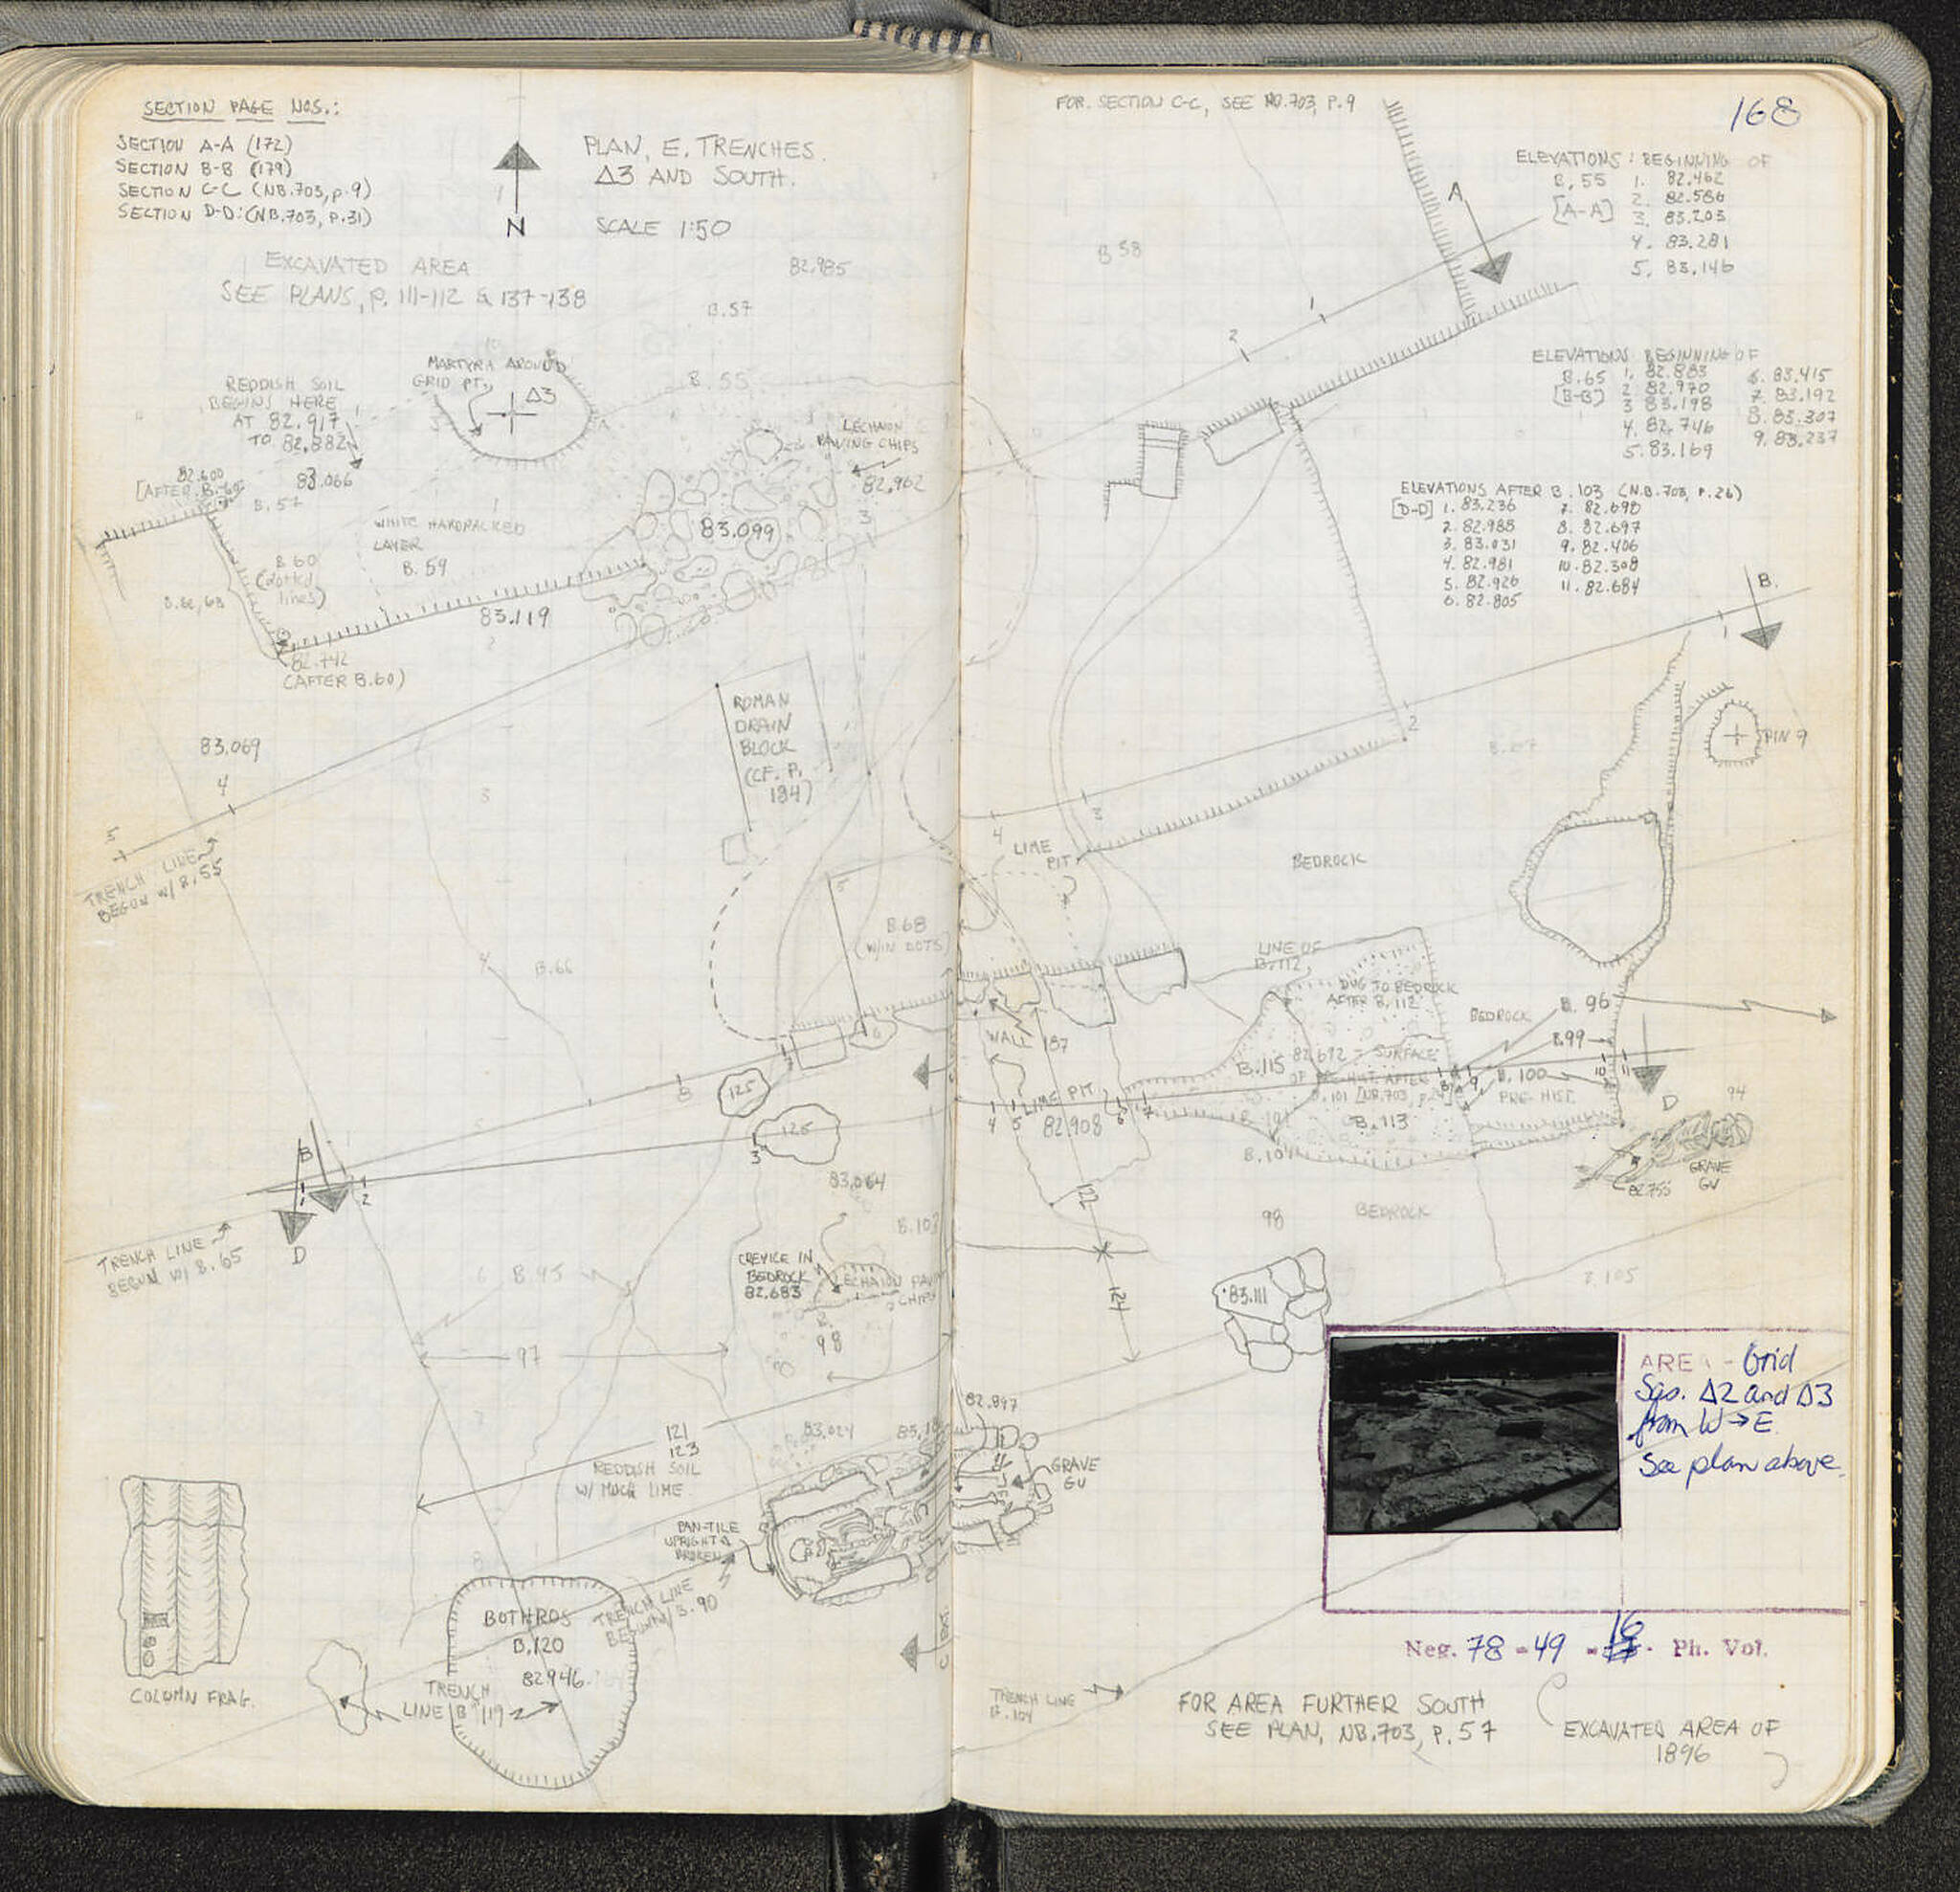 SECTION PAGE NOS.:
SECTION A-A (172)
SECTION B-B (179)
SECTION C-C (NB.703, p.9)
SECTION D-D: (NB.703, P.31)
N
PLAN, E. TRENCHES.
Δ3 AND SOUTH.
SCALE 1:50
EXCAVATED AREA
SEE PLANS, p. 111-112 & 137-138
82.985
B.57
B.55
MARTYRA AROUND
GRID PT.
Δ3
REDDISH SOIL
BEGINS HERE
AT 82.917
TO 82.882
LECHAION
PAVING CHIPS
82.962
82.600
[AFTER B.60]
83.066
B.57
WHITE HARDPACKED
LAYER
B.59
83.099
3
B.60
(dotted
lines)
83.119
82.742
(AFTER B.60)
ROMAN
DRAIN
BLOCK
(CF. P.
184)
83.069
4
5
TRENCH LINE
BEGUN W/ B.55
B.66
B.68
(W/IN DOTS)
5
6
8
125
125
3
B
2
D
TRENCH LINE
BEGUN W/ B.65
83.064
B.103
B.95
CREVICE IN
BEDROCK
82.683
LECHAION PAVING
CHIPS
B.
98
97
121
123
REDDISH SOIL
W/ MUCH LIME
83.024
PAN-TILE
UPRIGHT &
BROKEN
TRENCH LINE
BEGUN W/ B.90
BOTHROS
B.120
82.946
TRENCH
LINE B.119
COLUMN FRAG.
FOR SECTION C-C, SEE NB.703, P.9
168
A
B.58
1
2
ELEVATIONS: BEGINNING OF
B.55
[A-A]
1. 82.462
2. 82.586
3. 83.203
4. 83.281
5. 83.146
ELEVATIONS BEGINNING OF
B.65
[B-B]
1. 82.883
2 82.970
3 83.198
4. 82.746
5. 83.169
6. 83.415
7. 83.192
8. 83.307
9. 83.237
ELEVATIONS AFTER B.103 (N.B.703, P.26)
[D-D] 1. 83.236
2. 82.988
3. 83.031
4. 82.981
5. 82.926
6. 82.805
7. 82.690
8. 82.697
9. 82.406
10. 82.308
11. 82.684
B.
1
2
3
4
PIN 9
LIME
PIT
BEDROCK
LINE OF
B.112
DUG TO BEDROCK
AFTER B.112
BEDROCK
B. 96
B.99
B. 100
PRE-HIST.
WALL 187
B.115
82.692 - SURFACE
B.101 [NB.703, p.24]
B.113
LIME PIT
82.908
4 5 6 7
8 9
10 11
D
94
GRAVE
GV
82.755
B.104
122
124
98
BEDROCK
B.105
83.111
82.897
GRAVE
GU
AREA - Grid
Sqs. Δ2 and Δ3
from W→E
See plan above.
Neg. 78-49-18. Ph. Vol.
TRENCH LINE
B.104
FOR AREA FURTHER SOUTH
SEE PLAN, NB.703, P.57
EXCAVATED AREA OF
1896